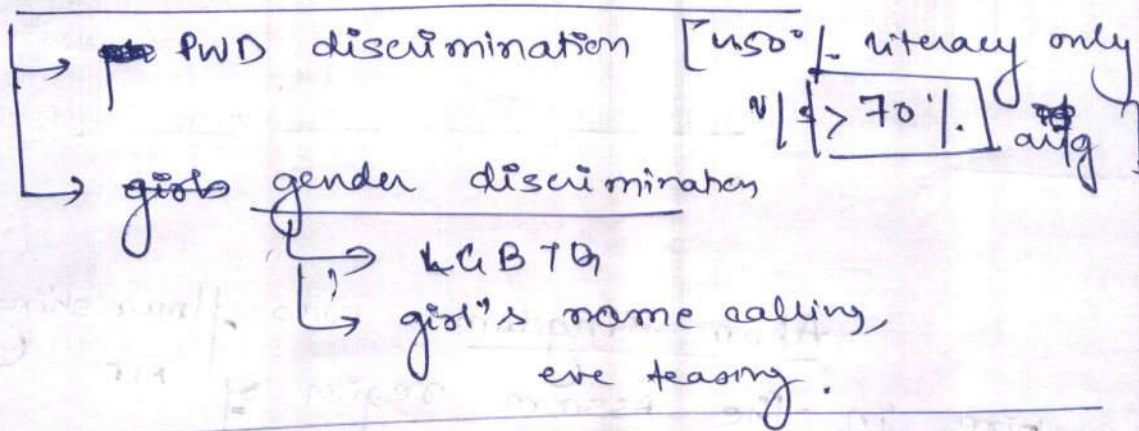 → PWD discrimination [ 50% literacy only
v/s > 70%. avg ]
→ gender discrimination
→ LGBTQ
→ girl's name calling,
eve teasing.